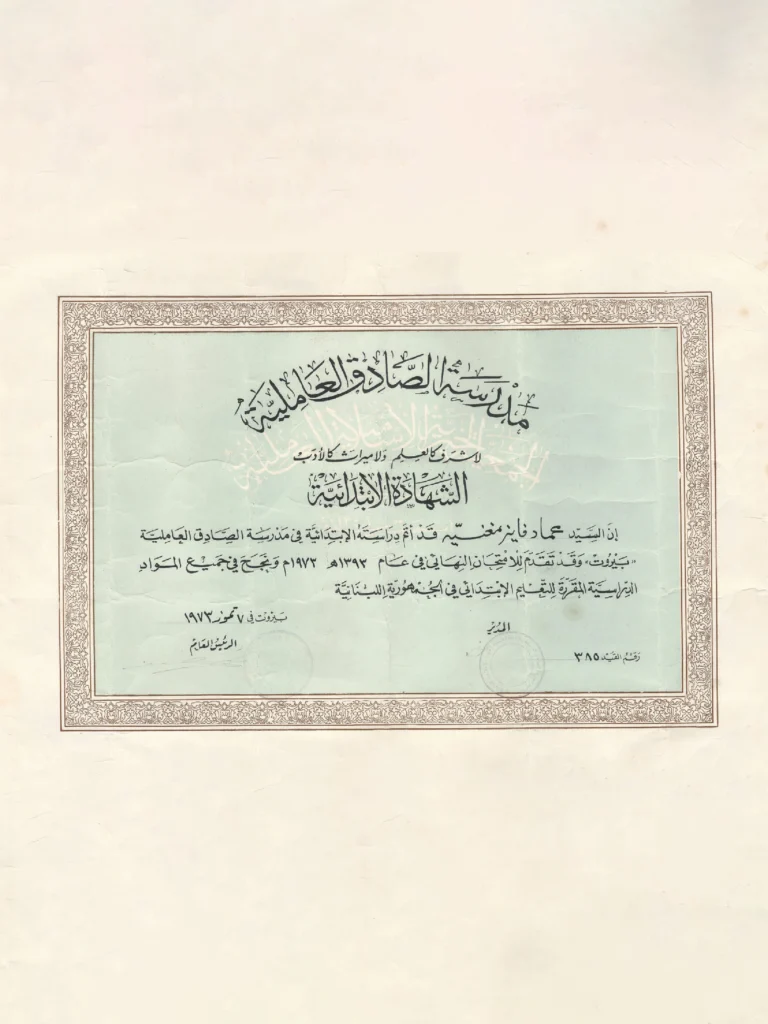 مدرسة الصادق العاملية
لا شرف كالعلم ولا ميراث كالأدب
الشهادة الابتدائية
إن السيد عماد فايز مغنيه قد أتم دراسته الابتدائية في مدرسة الصادق العاملية
«بيروت» وقد تقدم للامتحان النهائي في عام ١٣٩٣هـ ١٩٧٣م ونجح في جميع المواد
الدراسية المقررة للتعليم الابتدائي في الجمهورية اللبنانية
بيروت في ٧ تموز ١٩٧٣
المدير
الرئيس العام
رقم القيد ٣٨٥